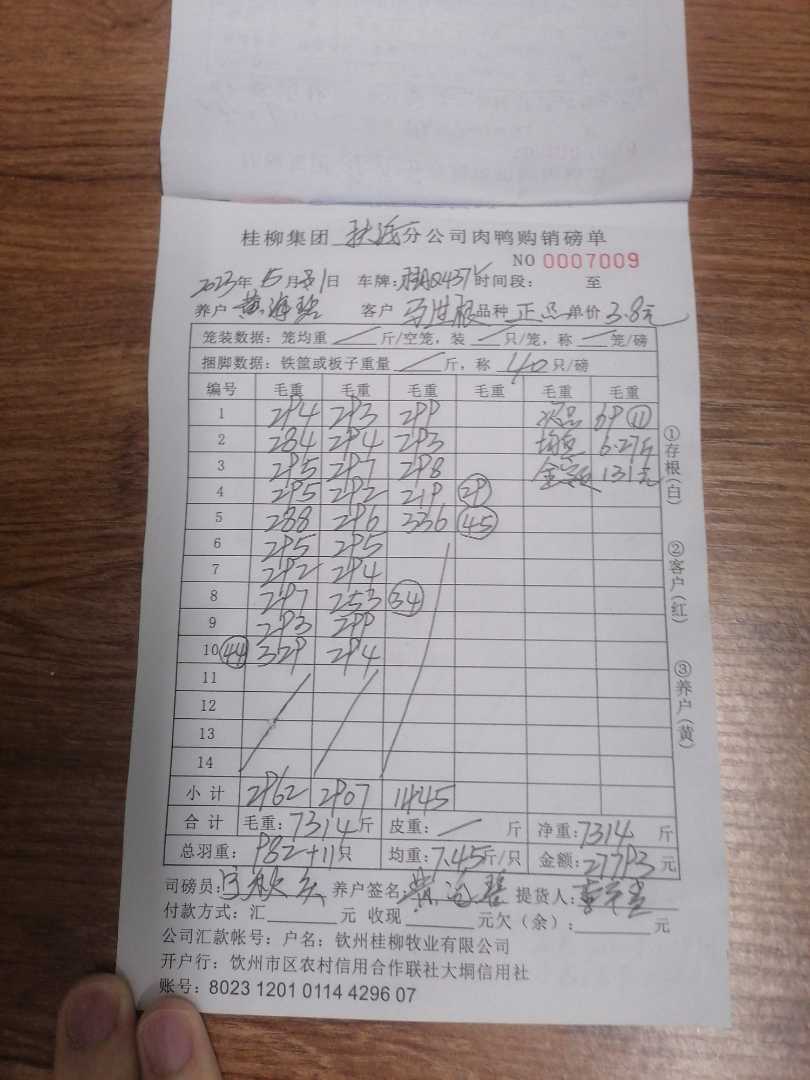 桂柳集团 扶绥 分公司肉鸭购销磅单
NO 0007009
2023年 5月31日 车牌：桂AQ437 时间段： 至
养户 黄海碧 客户 马生根 品种 正品 单价 3.8元
笼装数据：笼均重 斤/空笼，装 只/笼，称 笼/磅
捆脚数据：铁篮或板子重量 斤，称 40 只/磅
编号 毛重 毛重 毛重 毛重 毛重 毛重
1 294 293 299 次品 69 ⑪
2 284 294 293 均重 6.27斤
3 295 297 298 金额 131元
4 295 292 219 29
5 288 296 336 45
6 295 295
7 292 294
8 297 253 34
9 293 299
10 44 329 294
11
12
13
14
小计 2962 2907 1445
合计 毛重：7314斤 皮重： 斤 净重：7314 斤
总羽重： 982+11只 均重：7.45斤/只 金额：27793 元
司磅员： 养户签名：黄海碧 提货人：
付款方式：汇 元 收现 元欠（余）： 元
公司汇款帐号：户名：钦州桂柳牧业有限公司
开户行：钦州市区农村信用合作联社大垌信用社
账号：8023 1201 0114 4296 07
①存根(白)
②客户(红)
③养户(黄)